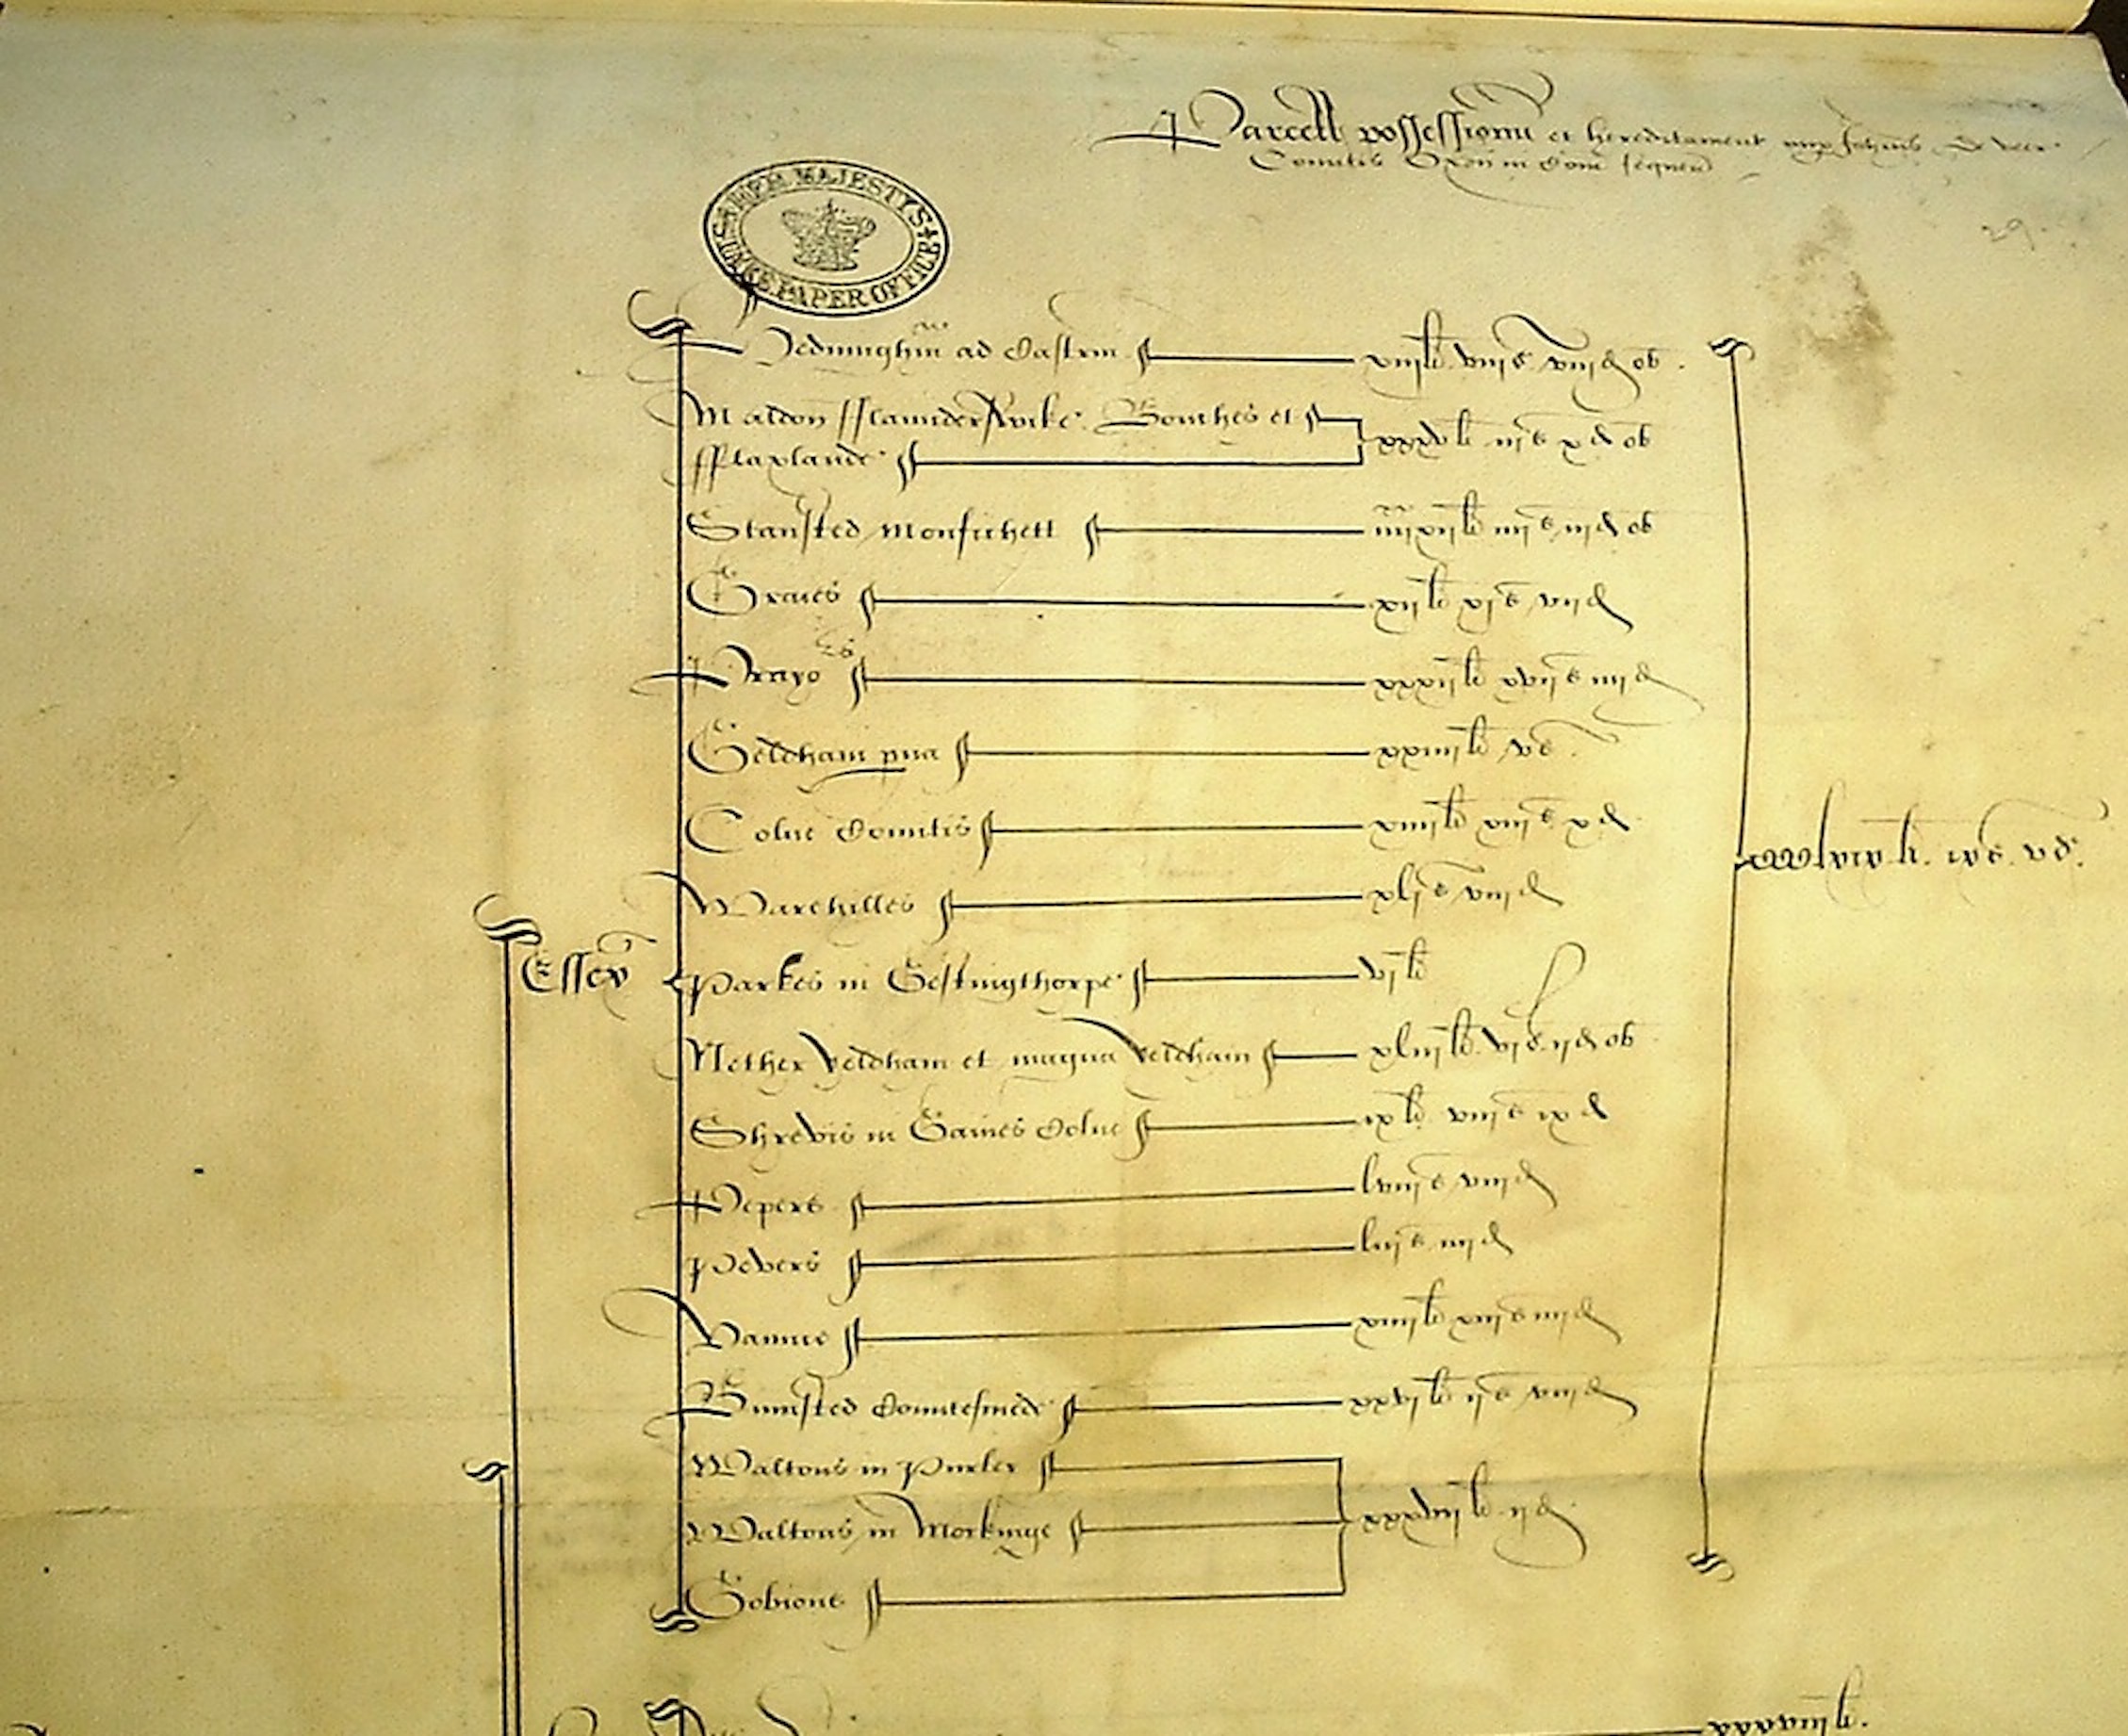 Parcell possessionu et hereditament nup Johnis de veer
Comitis Oxon in Com sequen
29
HER MAJESTYS STATE PAPER OFFICE
Hedninghm ad Castrm xiiijli viijs viijd ob
Maldon fflaunderswike Bouches et xxxvli iijs xd ob
fflaxlande
Stansted Monfichett iiijxxxijli iiijs iijd ob
Graies xijli xjs vijd
Prayo xxxijli xvijs iiijd
Geldham pua xxiiijli vs
Colne Comitis xiiijli xiijs xd
Warehilles xljs viijd
Essex Parkes in Gestingthorpe vjli
Nether yeldham et magna yeldham xliijli vjs ijd ob
Shrevis in Gaines Colne ixli viijs ixd
Pepers lviijs viijd
Pevers liijs iiijd
Vaunce xiiijli xiijs iiijd
Bumsted Countesmede xxvjli ijs viijd
Waltons in Purler
Waltons in Mockinge xxxvijli ijd
Gobions
li ixs vd
xxxviijli